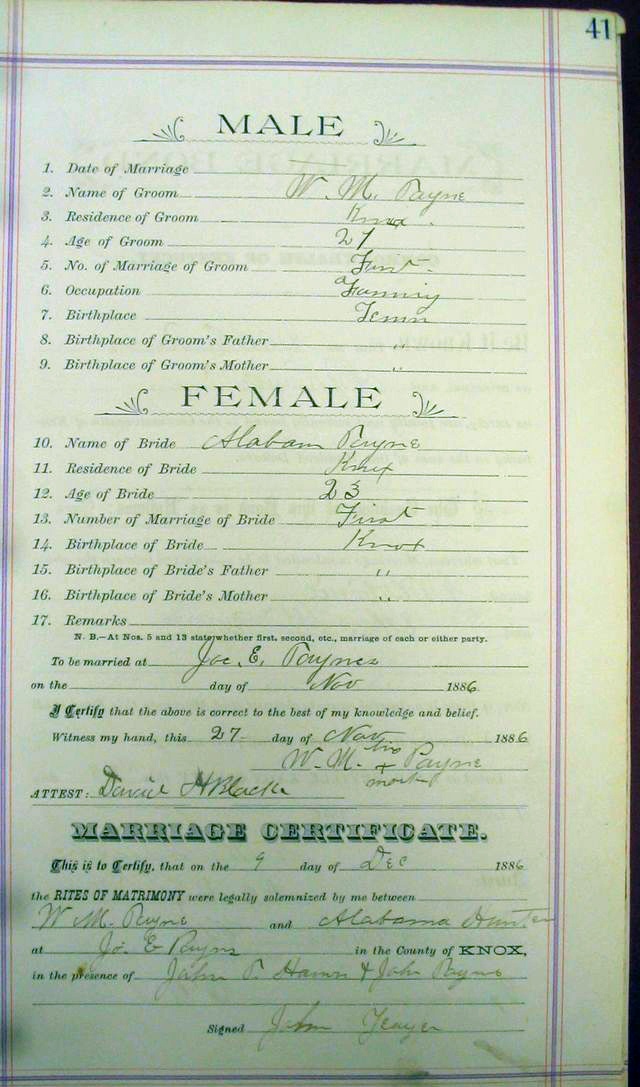 41
MALE
1. Date of Marriage
2. Name of Groom W. M. Payne
3. Residence of Groom Knox
4. Age of Groom 27
5. No. of Marriage of Groom First.
6. Occupation Farming
7. Birthplace Tenn
8. Birthplace of Groom's Father "
9. Birthplace of Groom's Mother "
FEMALE
10. Name of Bride Alabam Payne
11. Residence of Bride Knox
12. Age of Bride 23
13. Number of Marriage of Bride First
14. Birthplace of Bride Knox
15. Birthplace of Bride's Father "
16. Birthplace of Bride's Mother "
17. Remarks
N. B.—At Nos. 5 and 13 state whether first, second, etc., marriage of each or either party.
To be married at Joe. E. Paynes
on the day of Nov 1886
I Certify that the above is correct to the best of my knowledge and belief.
Witness my hand, this 27 day of Nov 1886
W. M. his + mark Payne
ATTEST: David H Black
MARRIAGE CERTIFICATE.
This is to Certify, that on the 9 day of Dec 1886
the RITES OF MATRIMONY were legally solemnized by me between
W M. Payne and Alabama Hunter
at Jo. E Payns in the County of KNOX,
in the presence of John & John Payne
Signed John Yeager